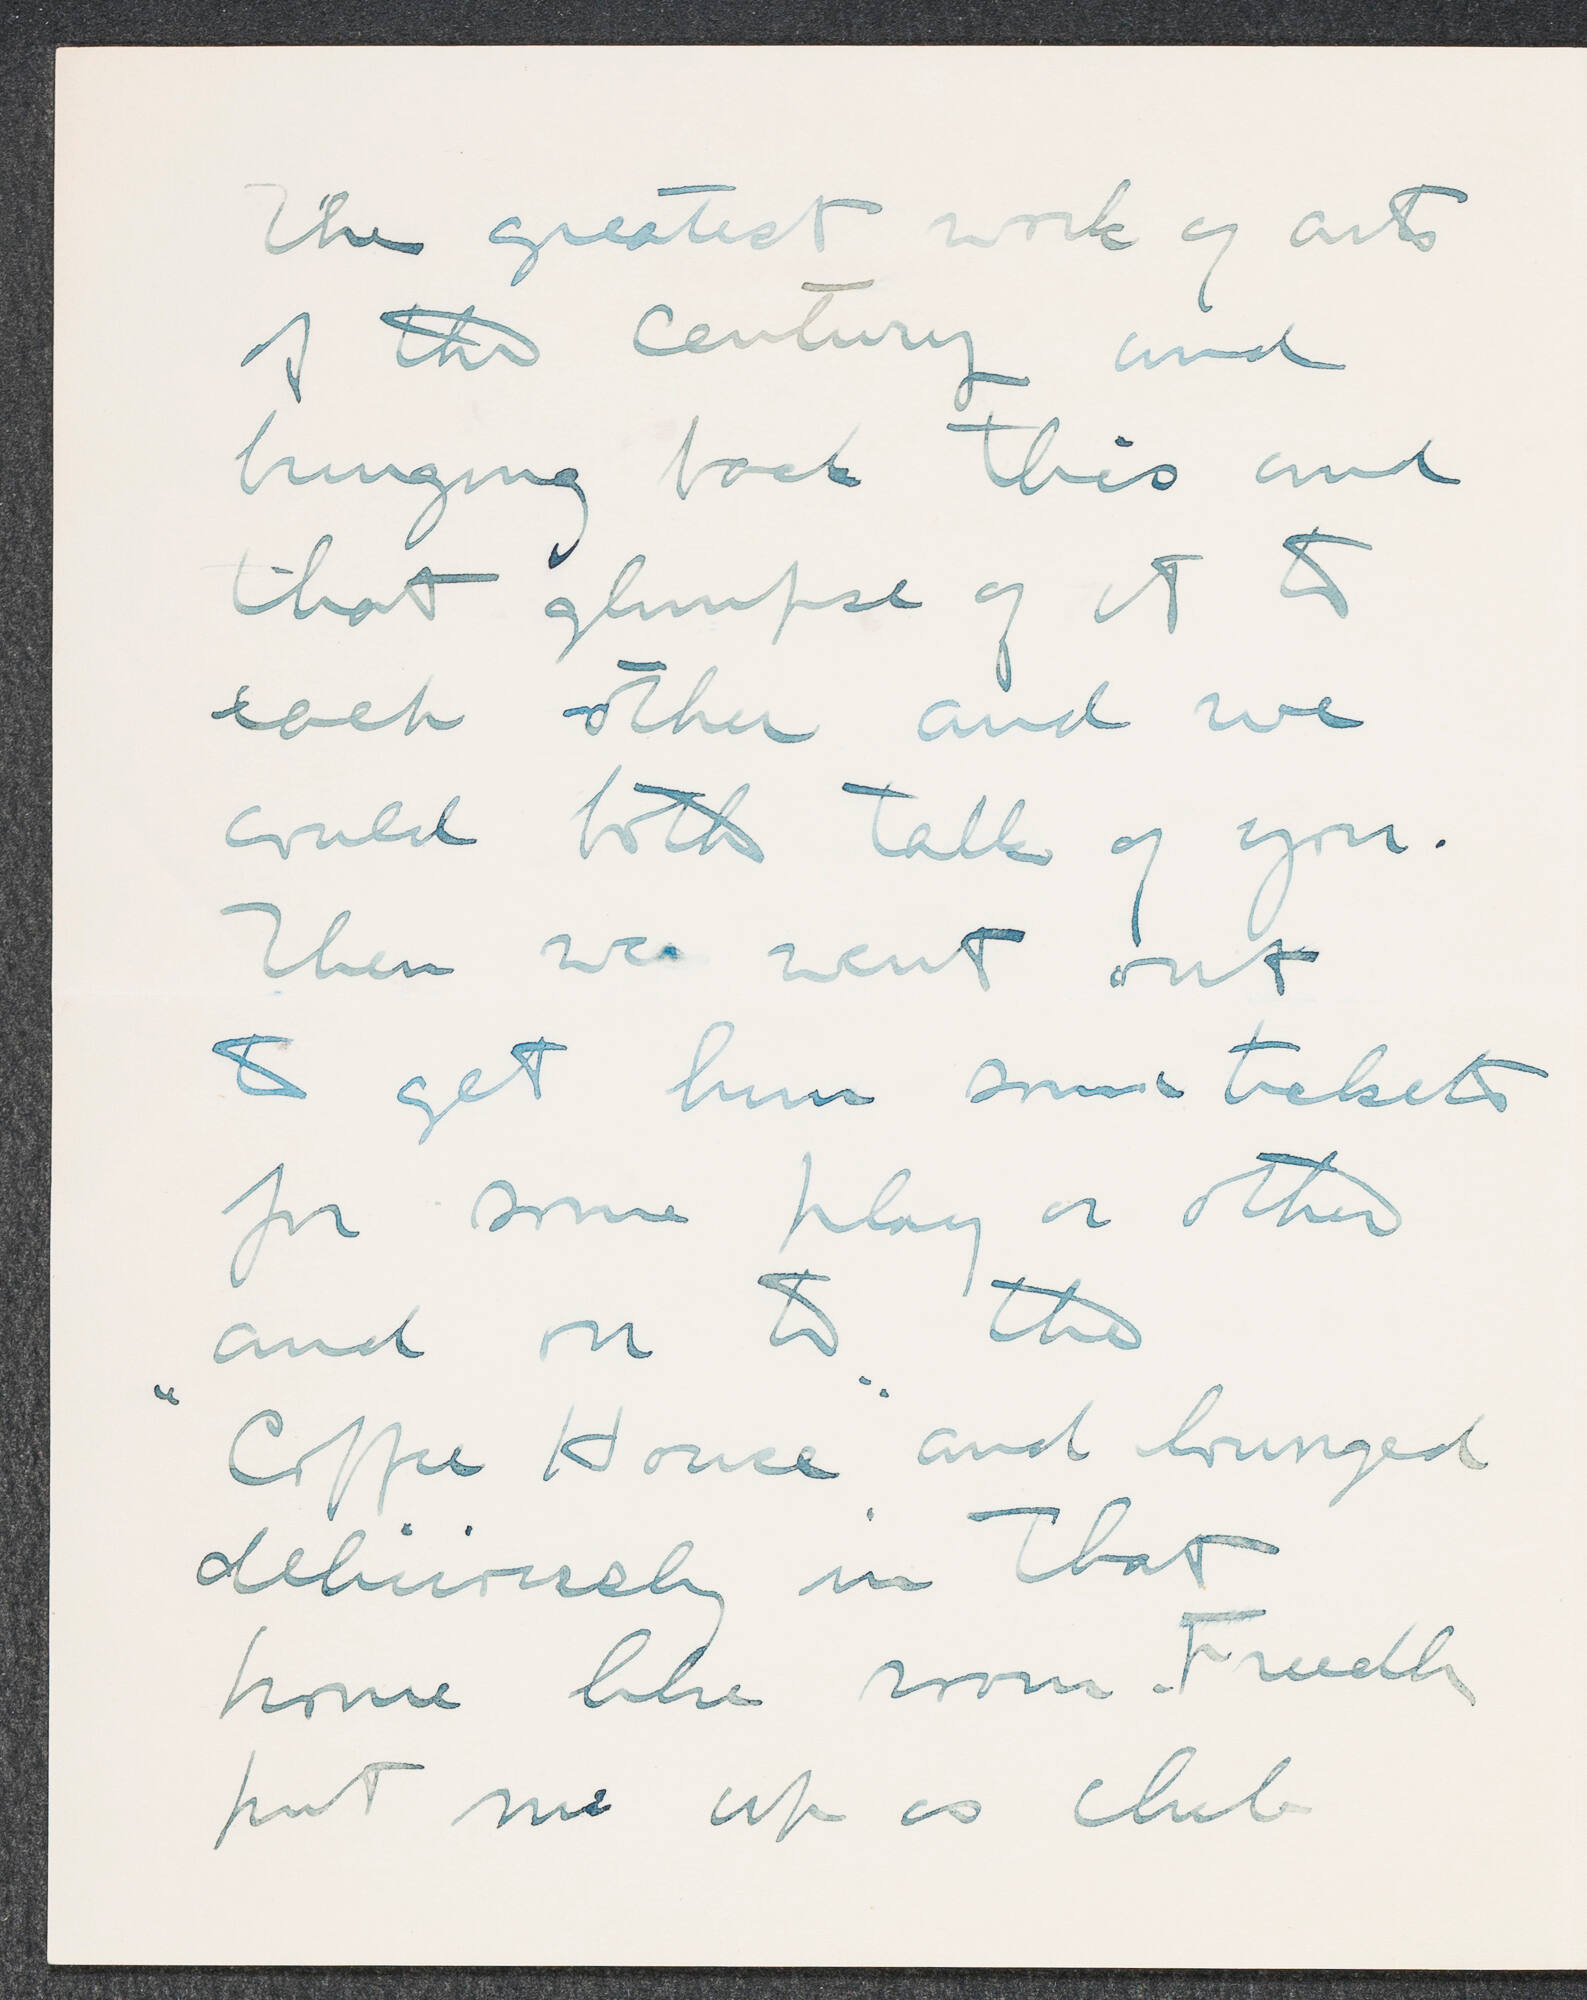 The greatest work of art
of the century and
bringing back this and
that glimpse of it to
each other and we
could both talk of you.
Then we went out
to get him some tickets
for some play or other
and on to the
"Coffee House" and lounged
deliciously in that
home like room. Freedly
put me up as club